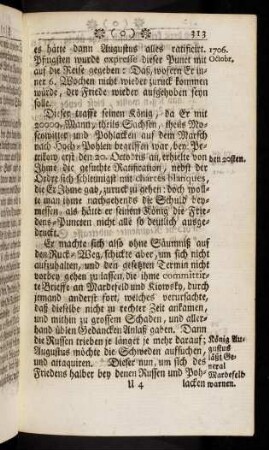 ( o ) 313
es hätte dann Augustus alles ratificirt. 1706.
Pfingsten wurde expresse dieser Punct mit Octobr.
auf die Reise gegeben: Daß, wofern Er in-
ner 6. Wochen nicht wieder zuruck kommen
würde, der Friede wieder aufgehoben seyn
solle.
Dieser traffe seinen König, da Er mit
20000. Mann, theils Sachsen, theils Mos-
cowiter und Pohlacken auf dem Marsch
nach Hoch-Pohlen begriffen war, bey Pe-
trikow erst den 20. Octobris an, erhielte von den 20sten.
Ihme die gesuchte Ratification, nebst der
Order sich schleunigst mit chartes blanques,
die Er Ihme gab, zuruck zu gehen: doch woll-
te man ihme nachgehends die Schuld bey-
messen, als hätte er seinem König die Frie-
dens-Puncten nicht alle so deutlich ausge-
druckt.
Er machte sich also ohne Säumnüß auf
den Ruck-Weg, schickte aber, um sich nicht
aufzuhalten, und den gesetzten Termin nicht
vorbey gehen zu lassen, die ihme committir-
te Brieffe an Mardefeld und Kiowsky, durch
jemand anderst fort, welches verursachte,
daß dieselbe nicht zu rechter Zeit ankamen,
und mithin zu grossem Schaden, und aller-
hand üblen Gedancken Anlaß gaben. Dann
die Russen trieben je länger je mehr darauf;
Augustus möchte die Schweden aufsuchen,
und attaquiren. Dieser nun, um sich des
Friedens halber bey denen Russen und Poh-
U 4 lacken
König Au-
gustus
läßt Ge-
neral
Mardefeld
warnen.